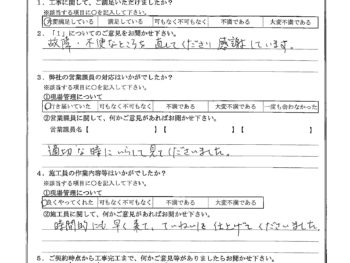 1. 工事に関して、ご満足いただけましたか？
※該当する項目に○を記入して下さい。
大変満足している 満足している 可も無く不可も無く 不満である 大変不満である
2. 「1」についてのご意見をお聞かせ下さい。
故障・不便なところを直してくださり感謝しています。
3. 弊社の営業課員の対応はいかがでしたか？
※該当する項目に○を記入して下さい。
①現場管理について
行き届いていた 可も無く不可も無く 不満である 大変不満である 一度も会わなかった
②営業課員に関して、何かご意見があればお聞かせ下さい。
営業課員名【 】【 】
適切な時にいらして見てくださいました。
4. 施工員の作業内容等はいかがでしたか？
※該当する項目に○を記入して下さい。
①現場管理について
良くやってくれた 可も無く不可も無く 不満である 大変不満である
②施工員に関して、何かご意見があればお聞かせ下さい。
時間的にも早く来て、ていねいに仕上げてくださいました。
5. ご契約時点から工事完了まで、何かご意見等がありましたらお聞かせ下さい。